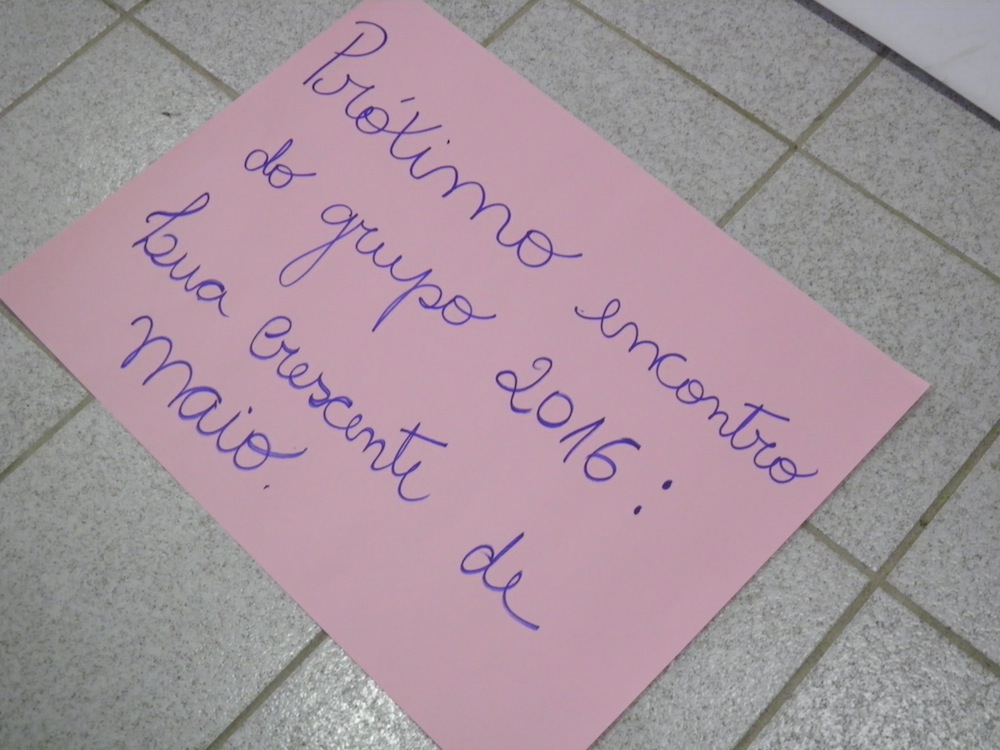 Próximo encontro
do grupo 2016:
Lua crescente de
maio.